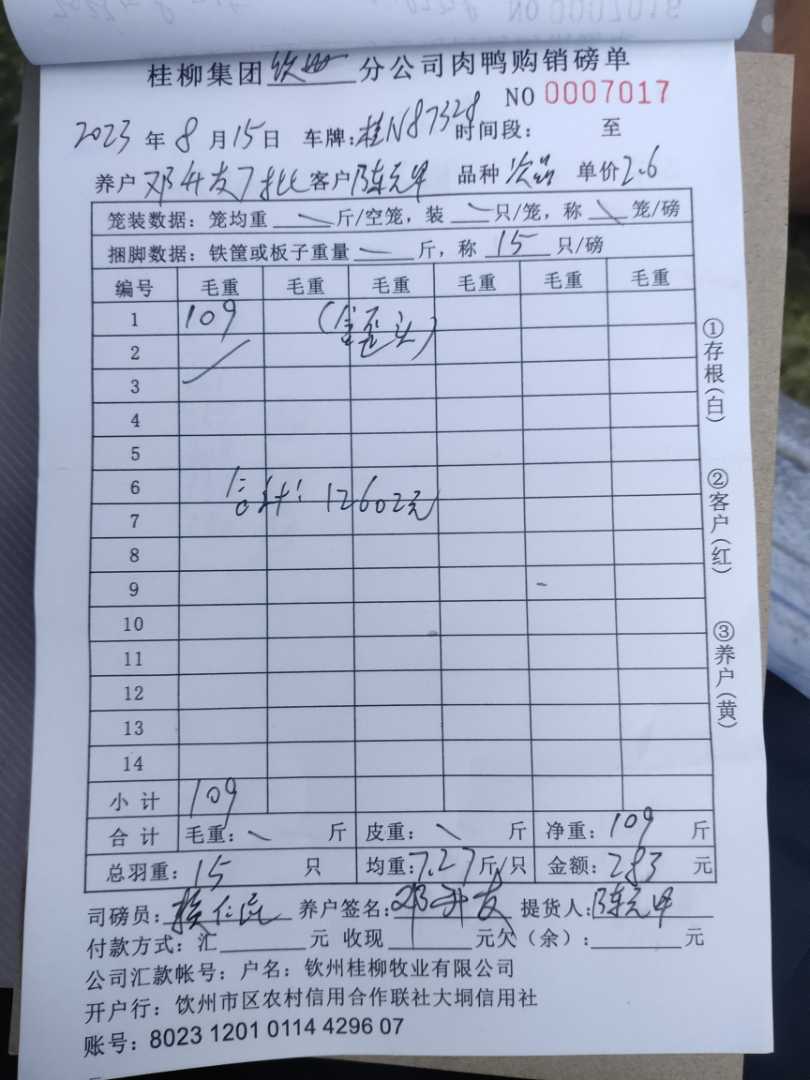 桂柳集团钦州分公司肉鸭购销磅单
NO 0007017
2023年8月15日 车牌:桂N87328 时间段: 至
养户邓升友7批 客户陈元甲 品种次品 单价2.6
笼装数据：笼均重 斤/空笼，装 只/笼，称 笼/磅
捆脚数据：铁筐或板子重量 斤，称 15 只/磅
编号 毛重 毛重 毛重 毛重 毛重 毛重
1 109 (歪头)
2
3
4
5
6
合计: 12602元
7
8
9
10
11
12
13
14
小计 109
合计 毛重： 斤 皮重： 斤 净重：109 斤
总羽重：15 只 均重：7.27斤/只 金额：283 元
司磅员： 养户签名:邓升友 提货人:陈元甲
付款方式：汇 元 收现 元欠（余）： 元
公司汇款帐号：户名：钦州桂柳牧业有限公司
开户行：钦州市区农村信用合作联社大垌信用社
账号：8023 1201 0114 4296 07
①存根(白)
②客户(红)
③养户(黄)